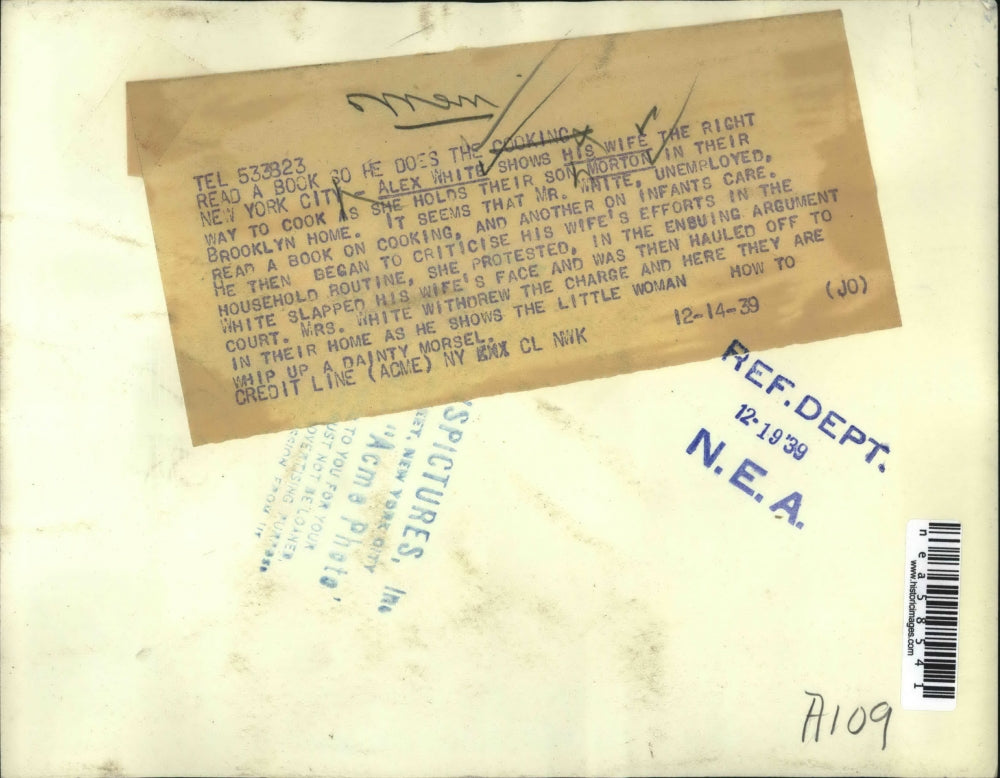 TEL 533823
READ A BOOK SO HE DOES THE COOKING
NEW YORK CITY -- ALEX WHITE SHOWS HIS WIFE THE RIGHT
WAY TO COOK AS SHE HOLDS THEIR SON MORTON IN THEIR
BROOKLYN HOME. IT SEEMS THAT MR. WHITE, UNEMPLOYED,
READ A BOOK ON COOKING, AND ANOTHER ON INFANTS CARE.
HE THEN BEGAN TO CRITICISE HIS WIFE'S EFFORTS IN THE
HOUSEHOLD ROUTINE, SHE PROTESTED, IN THE ENSUING ARGUMENT
WHITE SLAPPED HIS WIFE'S FACE AND WAS THEN HAULED OFF TO
COURT. MRS. WHITE WITHDREW THE CHARGE AND HERE THEY ARE
IN THEIR HOME AS HE SHOWS THE LITTLE WOMAN HOW TO
WHIP UP A DAINTY MORSEL.
CREDIT LINE (ACME) NY CL NWK 12-14-39 (JO)
REF. DEPT.
12-19'39
N. E. A.
SPICTURES, Inc
EET, NEW YORK CITY
"Acme Photo"
TO YOU FOR YOUR
UST NOT BE LOANED
nea58541
www.historicimages.com
A109